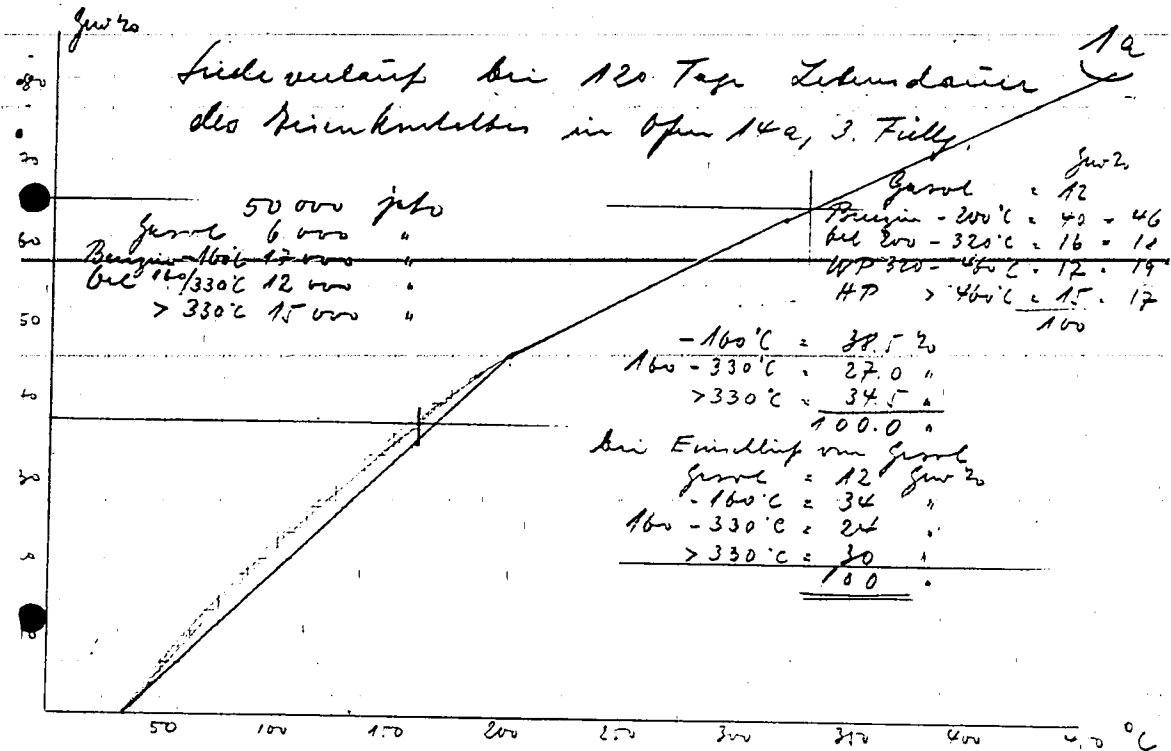 Gew %
1a
Siedeverlauf bei 120 Tage Lebensdauer
des Eisenkontaktes in Ofen 14a, 3. Füllg.
80
70
60
50
40
30
50 000 jato
Gasol 6 000 "
Benzin -160°C 17 000 "
Oel 160/330°C 12 000 "
> 330°C 15 000 "
Gew %
Gasol = 12
Benzin - 200°C = 40 = 46
Oel 200 - 320°C = 16 = 18
WP 320 - 460°C = 17 = 19
HP > 460°C = 15 = 17
100
-160°C = 38.5 %
160 - 330°C = 27.0 "
>330°C = 34.5 "
100.0 "
bei Einschluß von Gasol
Gasol = 12 Gew %
-160°C = 34 "
160 - 330°C = 24 "
> 330°C = 30 "
100 "
50 100 150 200 300 350 400 °C